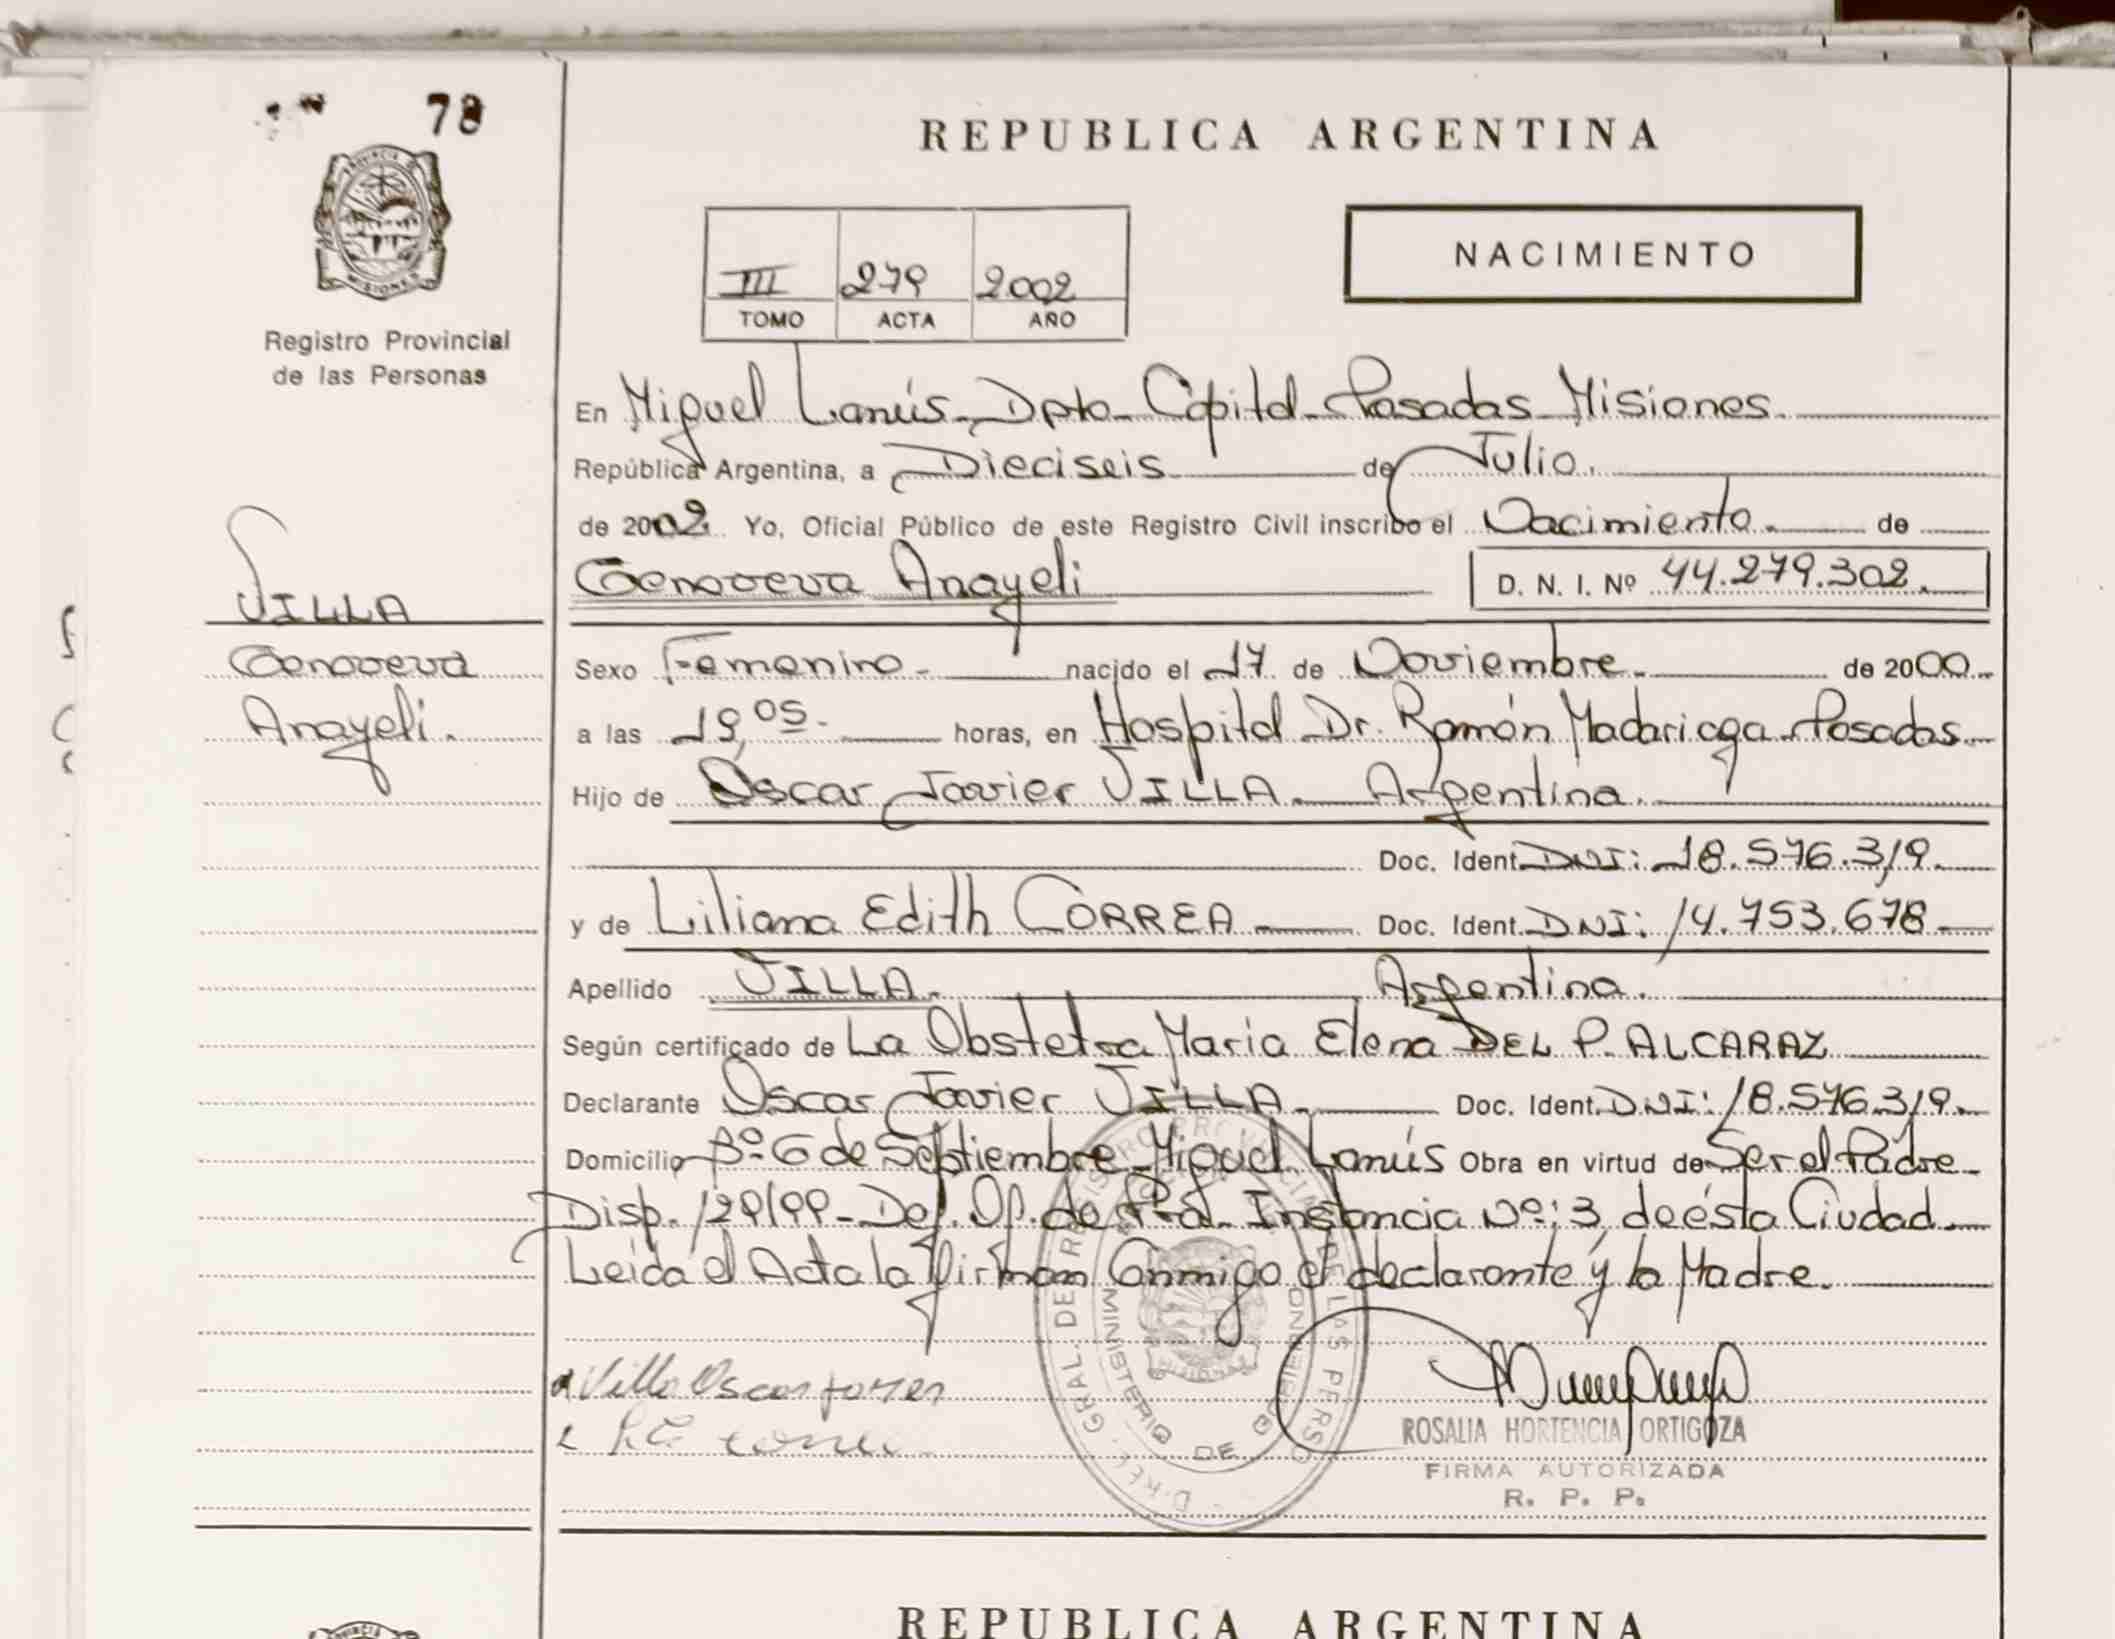 78
PROVINCIA D
MISIONES
Registro Provincial
de las Personas
REPUBLICA ARGENTINA
III 279 2002
TOMO ACTA AÑO
NACIMIENTO
En Miguel Lanús - Dpto - Capital - Posadas - Misiones.
República Argentina, a Dieciseis de Julio.
de 2002. Yo, Oficial Público de este Registro Civil inscribo el Nacimiento. de
Genoveva Anayeli D. N. I. Nº 44.279.302.
VILLA
Genoveva
Anayeli.
Sexo Femenino - nacido el 17 de Noviembre - de 2000 -
a las 19,05 - horas, en Hospital Dr. Ramón Madariaga - Posadas -
Hijo de Oscar Javier VILLA - Argentina.
Doc. Ident. DNI: 18.576.319.
y de Liliana Edith CORREA Doc. Ident. DNI: 14.753.678
Apellido VILLA. Argentina.
Según certificado de La Obstetra Maria Elena DEL P. ALCARAZ
Declarante Oscar Javier VILLA. Doc. Ident. DNI: 18.576.319.
Domicilio Bº 6 de Septiembre - Miguel Lanús Obra en virtud de Ser el Padre -
Disp. 129/99 - Def. Of. de Pra. Instancia Nº: 3, de ésta Ciudad
Leida el Acta la firman Conmigo el declarante y la Madre.
Villa Oscar Javier
ROSALIA HORTENCIA ORTIGOZA
FIRMA AUTORIZADA
R. P. P.
MINISTERIO DE GOBIERNO
REPUBLICA ARGENTINA